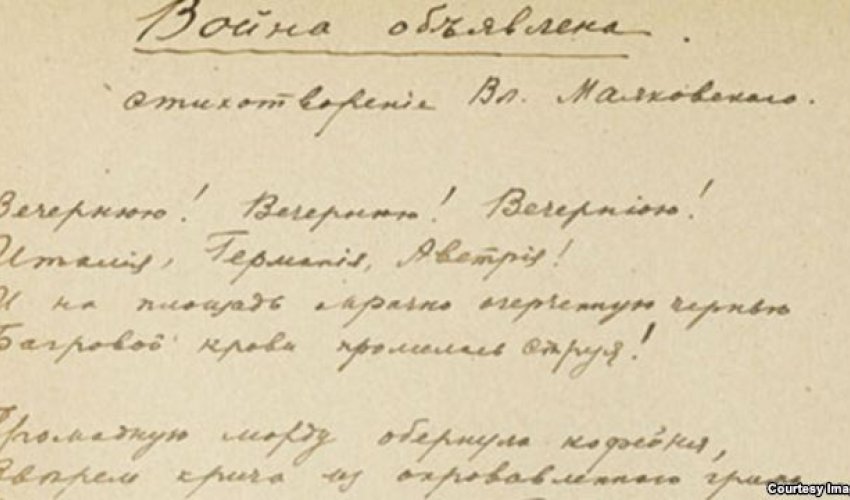 Война объявлена.
стихотвореніе Вл. Маяковскаго.
Вечернюю! Вечернюю! Вечернюю!
Италія, Германія, Австрія!
И на площадь мрачно очерченную чернью
Багровой крови пролилась струя!
Громадную морду обернула кофейня,
крича из окровавленного
Courtesy Ima